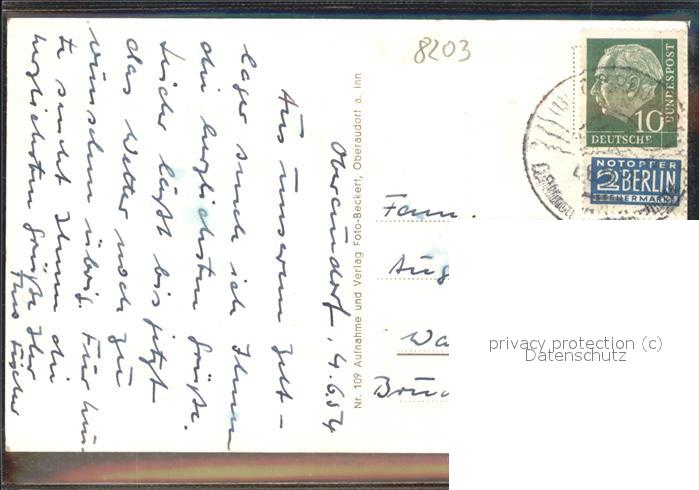 Oberaudorf, 4.6.54
Aus unserem Zelt-
lager sende ich Ihnen
die herzlichsten Grüße.
Leider läßt bis jetzt
das Wetter noch zu
wünschen übrig. Für heu-
te sendet Ihnen die
herzlichsten Grüße Ihr
Fischer
Nr. 109 Aufnahme und Verlag Foto-Beckert, Oberaudorf a. Inn
8203
BUNDESPOST
10
DEUTSCHE
NOTOPFER
2 BERLIN
STEUERMARKE
Fam.
Aug
Wa
Bruc
privacy protection (c)
Datenschutz